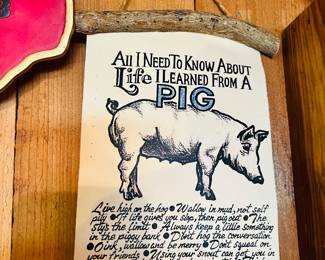 All I Need To Know About
Life I Learned From A
PIG
Live high on the hog • Wallow in mud, not self
pity • If life gives you slop, then pig out • The
sty's the limit • Always keep a little something
in the piggy bank • Don't hog the conversation
• Oink, wallow and be merry • Don't squeal on
your friends • Using your snout can get you in